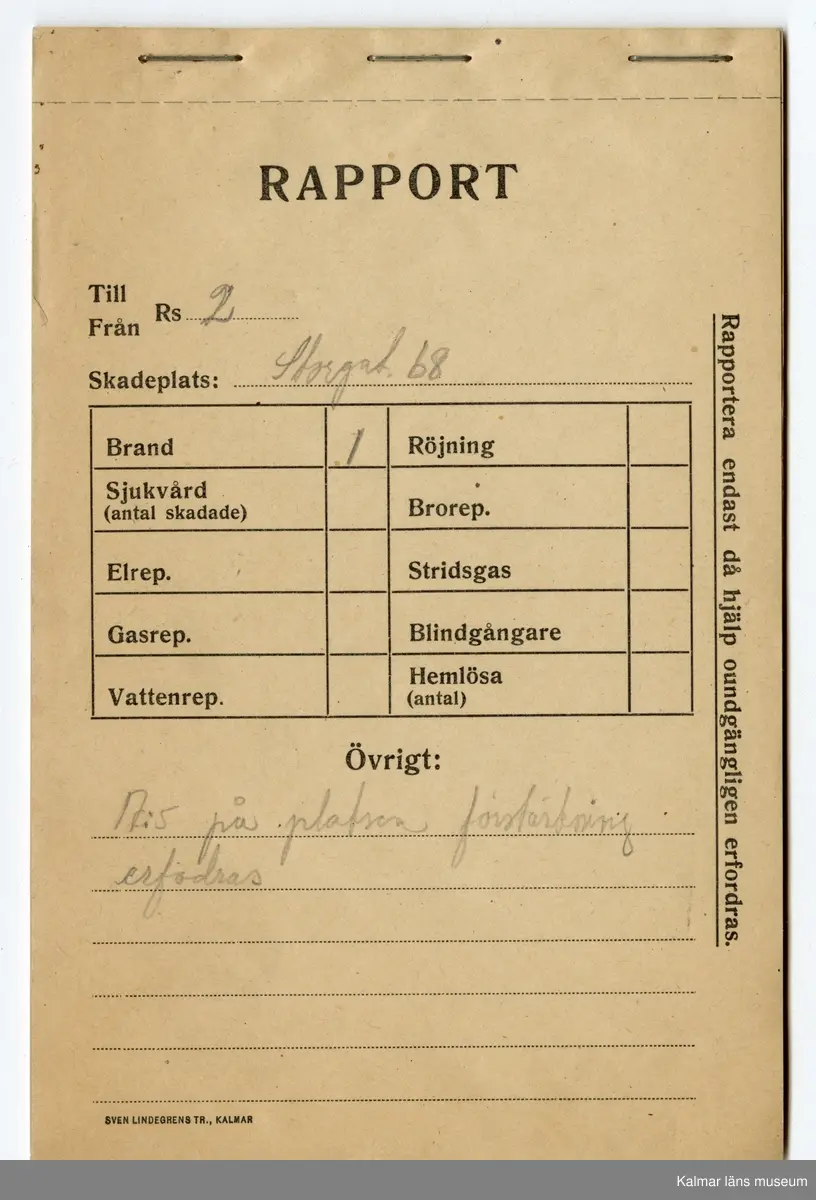 RAPPORT
Till
Från
Rs 2
Skadeplats: Storgat. 68
Brand 1 Röjning
Sjukvård
(antal skadade)
Brorep.
Elrep. Stridsgas
Gasrep. Blindgångare
Vattenrep. Hemlösa
(antal)
Övrigt:
på platsen förstärkning
erfodras
SVEN LINDEGRENS TR., KALMAR
Rapportera endast då hjälp oundgängligen erfordras.
Kalmar läns museum